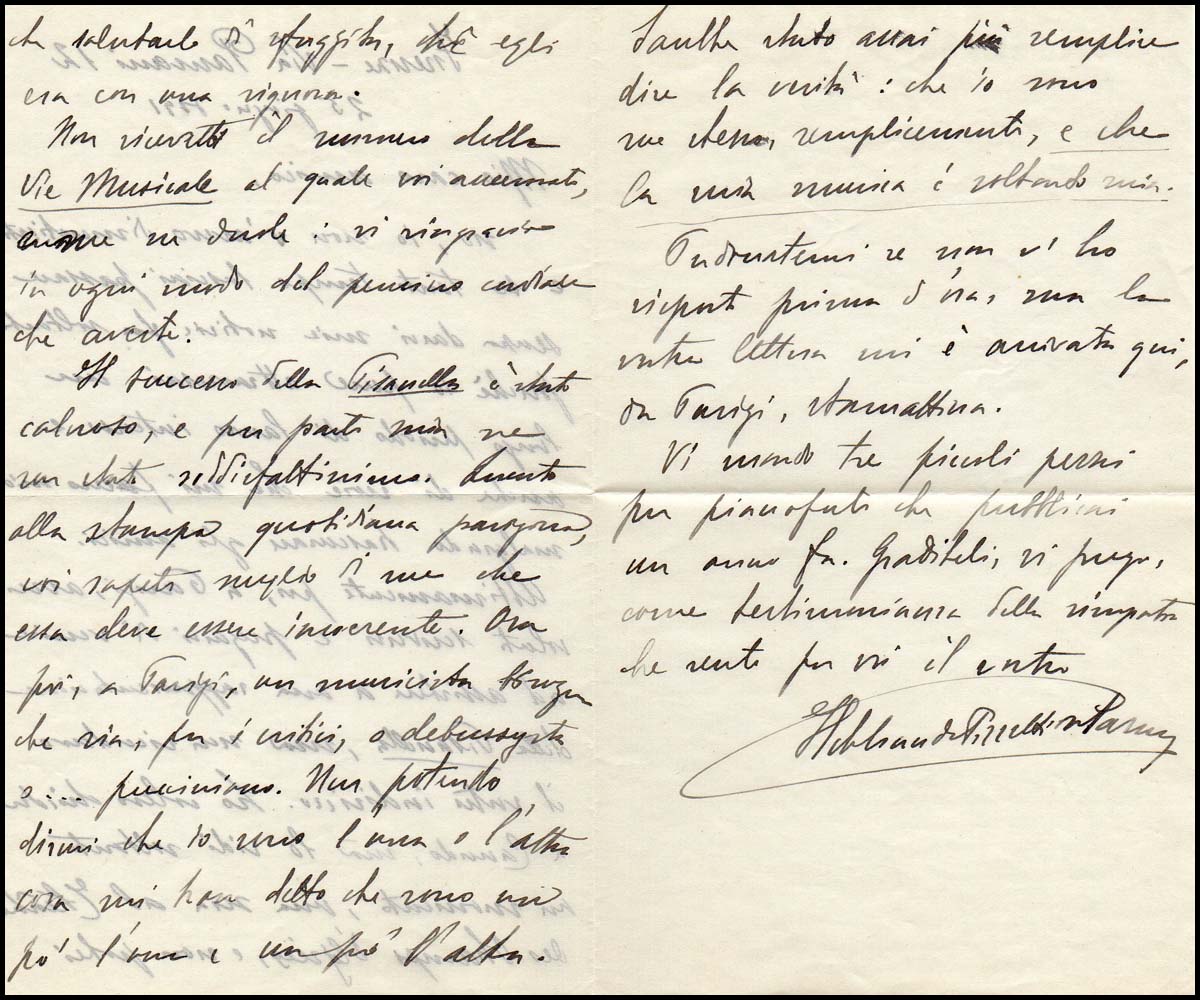 che salutarlo di sfuggita, chè egli
era con una signora.
Non ricevetti il numero della
Vie Musicale al quale voi accennate,
e me ne duole: vi ringrazio
in ogni modo del pensiero cordiale
che aveste.
Il successo della Pisanella è stato
caloroso, e per parte mia ne
son stato soddisfattissimo. Quanto
alla stampa quotidiana parigina,
voi sapete meglio di me che
essa deve essere incoerente. Ora
poi, a Parigi, un musicista bisogna
che sia, per i critici, o debussysta
o.... pucciniano. Non potendo
dirmi che io sono l'una o l'altra
cosa mi han detto che sono un
pò l'una e un pò l'altra.
Sarebbe stato assai più semplice
dire la verità: che io sono
me stesso, semplicemente, e che
la mia musica è soltando mia.
Perdonatemi se non vi ho
risposto prima d'ora, ma la
vostra lettera mi è arrivata qui,
da Parigi, stamattina.
Vi mando tre piccoli pezzi
per pianoforte che pubblicai
un anno fa. Graditeli, vi prego,
come testimonianza della simpatia
che sente per voi il vostro
Ildebrando Pizzetti da Parma